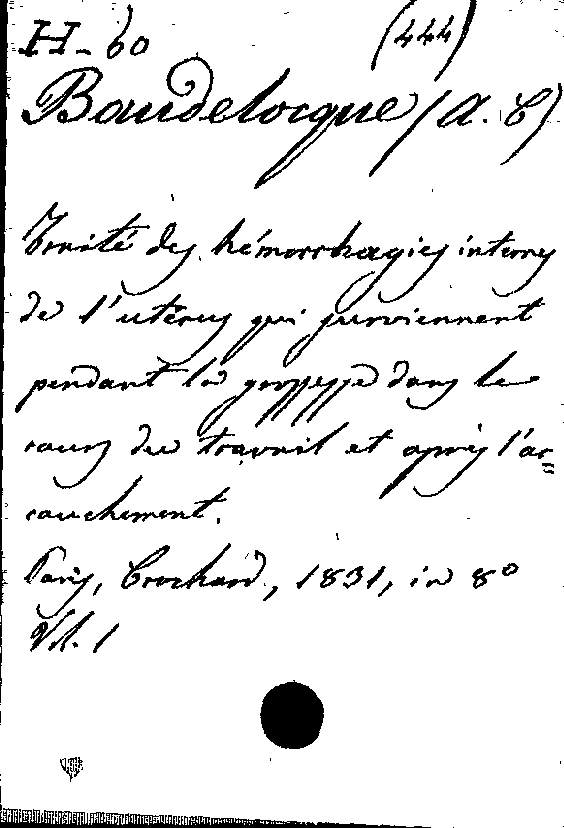 H-60 (444)
Baudelocque (A. C)
Traité des hémorrhagies internes
de l'utérus qui surviennent
pendant la grossesse dans le
cours du travail et après l'ac=
couchement.
Paris, Crochard, 1831, in 8°
Vol. 1